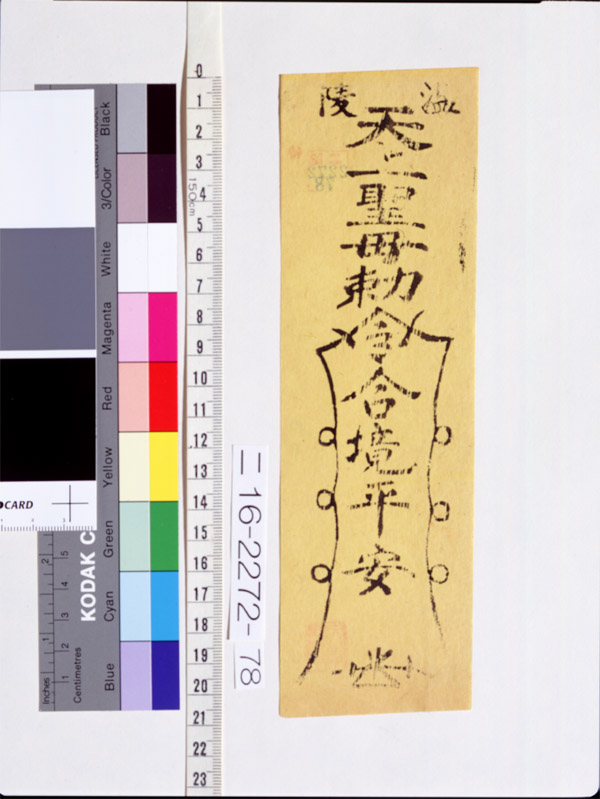 溫陵
天上聖母勅令合境平安
二16-2272-78
Black
3/Color
White
Magenta
Red
Yellow
Green
Cyan
Blue
KODAK C
Inches
Centimetres
CARD
150cm
0
1
2
3
4
5
6
7
8
9
10
11
12
13
14
15
16
17
18
19
20
21
22
23